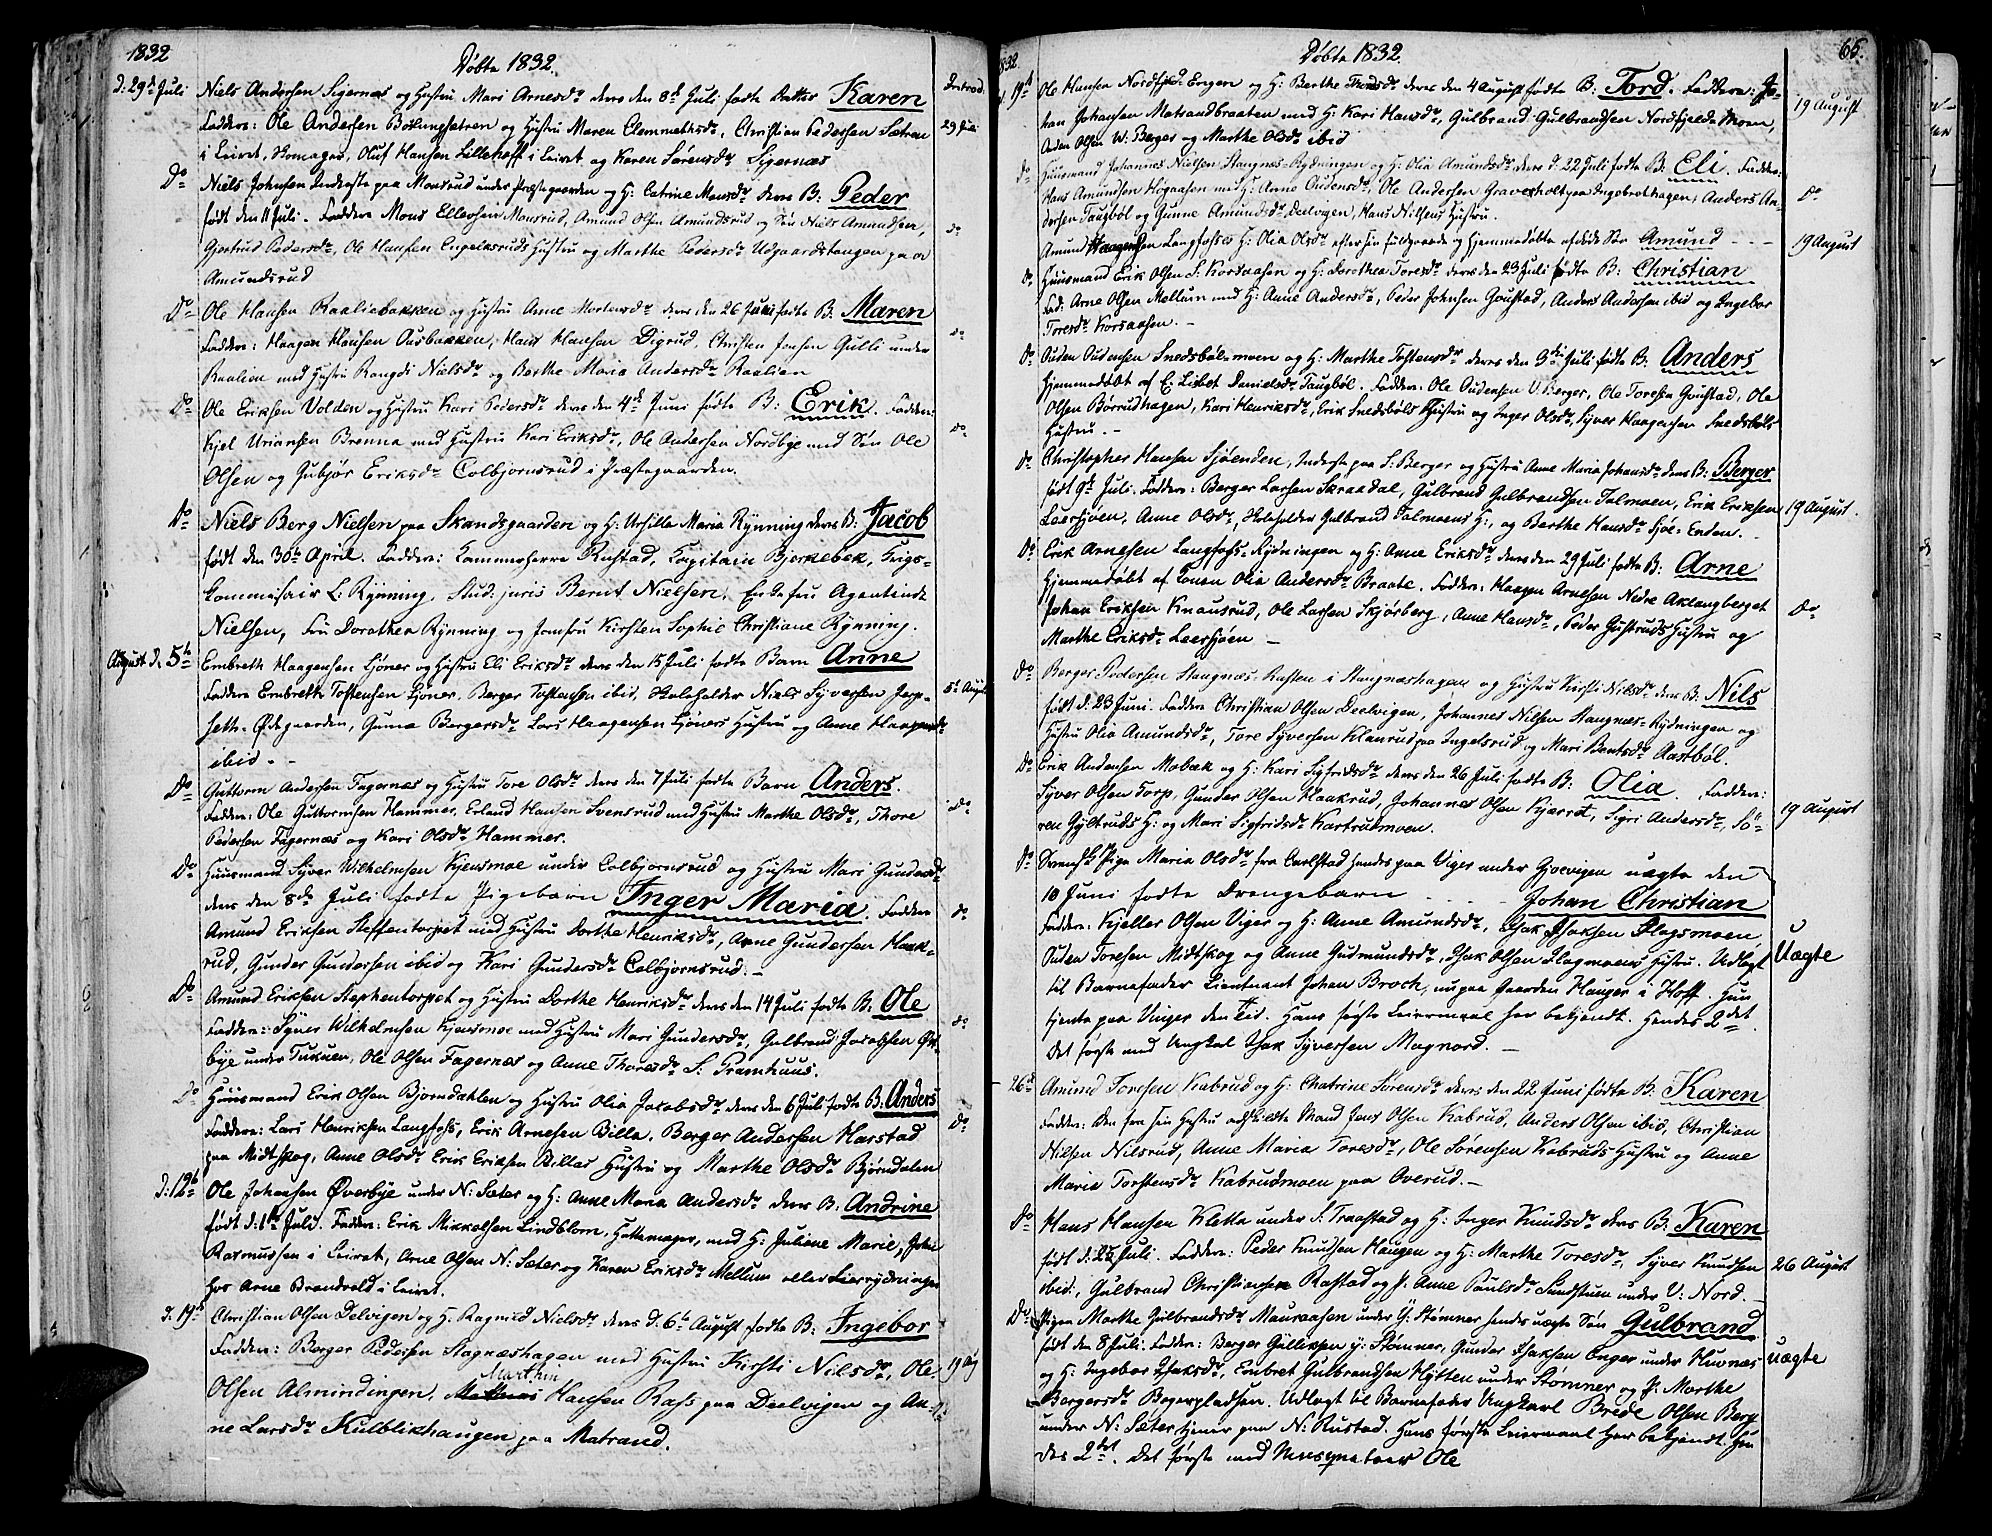 1832
Döbte 1832.
d: 29de Juli Niels Andersen Sigernæs og Hustru Mari Arnesdr deres den 8de Juli fødte Datter Karen Introd.
Faddere: Ole Andersen Bökungsætren og Hustru Maren Clemmetsdr, Christian Pedersen Sætren 29 Juli
i Leiret, Skomager, Oluf Hansen Lillehoff i Leiret og Karen Sörensdr Sigernæs
Do Niels Johnsen Inderste paa Monsrud under Præstegaarden og H: Catrine Monsdr deres B: Peder
født den 11 Juli. Faddere Mons Ellevsen Monsrud, Amund Olsen Amundsrud og Søn Niels Amundsen, Do
Gjertrud Pedersdr, Ole Hansen Engelsruds Hustru og Marthe Pedersdr Udgaardstangen paa
Amundsrud
Do Ole Hansen Raaliebakken og Hustru Anne Mortensdr deres den 26 Juni fødte B: Maren
Faddere: Haagen Hansen Ousbakken, Hans Hansen Digrud, Christen Jensen Gulli under Do
Raalien med Hustru Rangdi Nielsdr og Berthe Maria Andersdr Raalien
Do Ole Eriksen Volden og Hustru Kari Pedersdr deres den 4de Juni fødte B: Erik. Fadder:
Kjel Uriansen Brenna med Hustru Kari Eriksdr, Ole Andersen Nordbye med Søn Ole Do
Olsen og Gubjør Eriksdr Colbjornsrud i Præstegaarden.
Do Niels Berg Nielsen paa Skandsgaarden og H: Ursilla Maria Rynning deres B: Jacob
født den 30te April. Faddere: Kammerherre Rustad, Capitain Bjerkebek, Krigs-
kommisair L: Rynning, Stud: juris Bernt Nielsen, Enkefru Agentinde
Nielsen, Fru Dorothea Rynning og Jomfru Kirsten Sophie Christiane Rynning.
August d. 5te Embreth Haagensen Ljöner og Hustru Eli Eriksdr deres den 15 Juli fødte Barn Anne
Faddere Embreth Tostensen Ljöner, Berger Tostensen ibid, Skoleholder Niels Syversen Jerp- 5te August
seth-Ødegaarden, Gunna Bergersdr Lars Haagensen Ljöners Hustru og Anne Haagensdr
ibid. -
Do Guttorm Andersen Fagernæs og Hustru Tore Olsdr deres den 7 Juli fødte Barn Anders.
Fadder: Ole Guttormsen Hammer, Erland Hansen Svensrud med Hustru Marthe Olsdr, Thore Do
Pedersen Fagernæs og Kari Olsdr Hammer.
Do Huusmand Syver Wilhelmsen Kjensmoe under Colbjornsrud og Hustru Mari Gundersdr
deres den 8de Juli fødte Pigebarn Inger Maria. Faddere Do
Amund Eriksen Steffentorpet med Hustru Dorthe Henriksdr, Arne Gundersen Haak-
rud, Gunder Gundersen ibid og Kari Gundersdr Colbjornsrud. -
Do Amund Eriksen Stephentorpet og Hustru Dorthe Henriksdr deres den 14 Juli fødte B: Ole
Faddere: Syver Wilhelmsen Kjensmoe med Hustru Mari Gundersdr, Gulbrand Jacobsen Øst- Do
bye under Tukuen, Ole Olsen Fagernæs og Anne Thoresdr S: Pramhuus.
Do Huusmand Erik Olsen Bjorndahlen og Hustru Olia Jacobsdr deres den 6 Juli fødte B. Anders
Faddere: Lars Henriksen Langfoss, Erik Arnesen Billa, Berger Andersen Harstad Do
paa Midtskog, Anne Olsdr Erik Eriksen Billas Hustru og Marthe Olsdr Bjørndalen
d: 12te Ole Johansen Øverbye under N: Sæter og H: Anne Maria Andersdr deres B: Andrine
født d: 1te Juli. Fadder: Erik Mikkelsen Lindblom, Hattemager, med H: Juliane Marie, John
Rasmussen i Leiret, Arne Olsen N: Sæter og Karen Eriksdr Mellum eller Leerrydningen
hos Arne Brandvold i Leiret.
d. 19de Christian Olsen Delvigen og H. Ragnild Nielsdr deres d: 6te August fødte B: Ingebor
Faddere: Berger Pedersen Stagnæshagen med Hustru Kirsti Nilsdr, Ole 19 Aug
Marthin
Olsen Almindingen, Hansen Rafs paa Deelvigen og An-
ne Larsdr Kulblikhaugen paa Matrand.
1832. Döbte 1832. 65.
d 19de Ole Hansen Nordfjeld-Engen og H: Berthe Thordsdr deres den 4 August fødte B: Tord. Faddere: Jo-
han Johansen Matrandbraaten med H: Kari Hansdr, Gulbrand Gulbrandsen Nordfjelds-Moen, 19 August
Auden Olsen W. Berger og Marthe Olsdr ibid
Do Huusmand Johannes Nielsen Stangnes-Rydningen og H: Olia Amundsdr deres d. 22 Juli fødte B: Eli. Faddere:
Hans Amundsen Høgaasen med H: Anne Oudensdr, Ole Andersen Graversholt paa Ingebrethagen, Anders An- Do
dersen Taugböl og Gunne Amundsdr Deelvigen, Hans Nilsens Hustru.
Amund Haagensen Langfosses H: Olia Olsdr efter sin fuldgaaede og hjemmedøbte afdøde Søn Amund - - - 19 August
Do Huusmand Erik Olsen S. Korsaasen og H: Dorothea Toresdr deres den 23 Juli fødte B: Christian
Fad: Arne Olsen Mellum med H: Anne Andersdr, Peder Johnsen Goustad, Anders Andersen ibid og Ingebor
Toresdr Korsaasen. -
Do Ouden Oudensen Snedsböl-moen og H: Marthe Tostensdr deres den 3de Juli fødte B: Anders
Hjemmedøbt af E: Lisbet Danielsdr Taugböl. Faddere: Ole Oudensen V: Berger, Ole Toresen Goustad, Ole
Olsen Börrudhagen, Kari Henriksdr, Erik Snedsböls Hustru og Inger Olsdr, Syver Haagensen Snedsböls
Hustru. -
Do Christopher Hansen Sjöenden, Inderste paa S: Berger og Hustru Anne Maria Johansdr deres B: Berger
født 9de Juli. Faddere: Berger Larsen Skraadal, Gulbrand Gulbrandsen Talmoen, Erik Eriksen
Leersjøen, Anne Olsdr, Skoleholder Gulbrand Talmoens H:, og Berthe Hansdr Sjöe-Enden. - 19 August.
Do Erik Arnesen Langfoss-Rydningen og H: Anne Eriksdr deres den 29 Juli fødte B: Arne
Hjemmedøbt af Konen Olia Andersdr Braate. Fadder: Haagen Arnesen Nedre Aklangberget
Johan Eriksen Knausrud, Ole Larsen Skjørberg, Anne Hansdr, Peder Gustruds Hustru og Do
Marthe Eriksdr Leersjøen -
Do Berger Pedersen Stangnæs-Kasten i Stangneshagen og Hustru Kirsti Nilsdr deres B: Nils
født d: 23 Juni. Faddere Christian Olsen Deelvigen, Johannes Nilsen Stangnæs-Rydningen og
Hustru Olia Amundsdr, Tore Syversen Klanrud paa Ingelsrud og Mari Berntsdr Aastböl.
Do Erik Andersen Mobæk og H: Kari Sigfridsdr deres den 26 Juli fødte B: Olia. Faddere:
Syver Olsen Torp, Gunder Olsen Haakrud, Johannes Olsen Kjærret, Sigri Andersdr, Sö- 19 August
ren Gyltruds H: og Mari Sigfridsdr Kartrudmoen.
Do Svensk Pige Maria Olsdr fra Carlstad hendes paa Viger under Gjoevigen uægte den
10 Juni fødte Drengebarn - - - Johan Christian
Fadder: Kjeller Olsen Viger og H: Anne Amundsdr, Isak Isaksen Flagsmoen Uægte
Ouden Toresen Midtskog og Anne Gudmundsdr, Isak Olsen Flagmoens Hustru. Udlagt
til Barnefader Lieutnant Johan Broch, nu paa Gaarden Hauger i Hoff. Hun
tjente paa Vinger den Tid. Hans første Leiermaal her bekjendt. Hendes 2det.
Det første med Ungkal Isak Syversen Magnord. -
- 26de Amund Toresen Kabrud og H: Chatrine Sörensdr deres den 22 Juni fødte B: Karen
Faddere: Den fra sin Hustru adskildte Mand Jens Olsen Kabrud, Anders Olsen ibid, Christian
Nilsen Nilsrud, Anne Maria Toresdr, Ole Sørensen Kabruds Hustru og Anne
Maria Torstensdr Kabrudmoen paa Overud. -
Do Hans Hansen Kletta under S. Traastad og H: Inger Knudsdr deres B: Karen
født d: 25 Juli. Faddere: Peder Knudsen Haugen og H: Marthe Toresdr, Syver Knudsen 26 August
ibid:, Gulbrand Christiansen Rastad og P. Anne Paulsdr Sundstuen under V: Nord. -
Do Pigen Marthe Gulbrandsdr Mauraasen under Y: Stömner hendes uægte Søn Gulbrand
født den 8 Juli. Fadder: Berger Gulliksen y: Stømner, Gunder Isaksen Enger under Huvnæs Uægte
og H: Ingebor Isaksdr, Embret Gulbrandsen Hytten under Stømner og P. Marthe
Bergersdr Begerpladsen. Udlagt til Barnefader Ungkarl Brede Olsen Berg
under N: Sæter, tjener paa N: Rustad. Hans første Leiermaal her bekjendt. Hen
des 2det. Det første med Musqueteer Ole